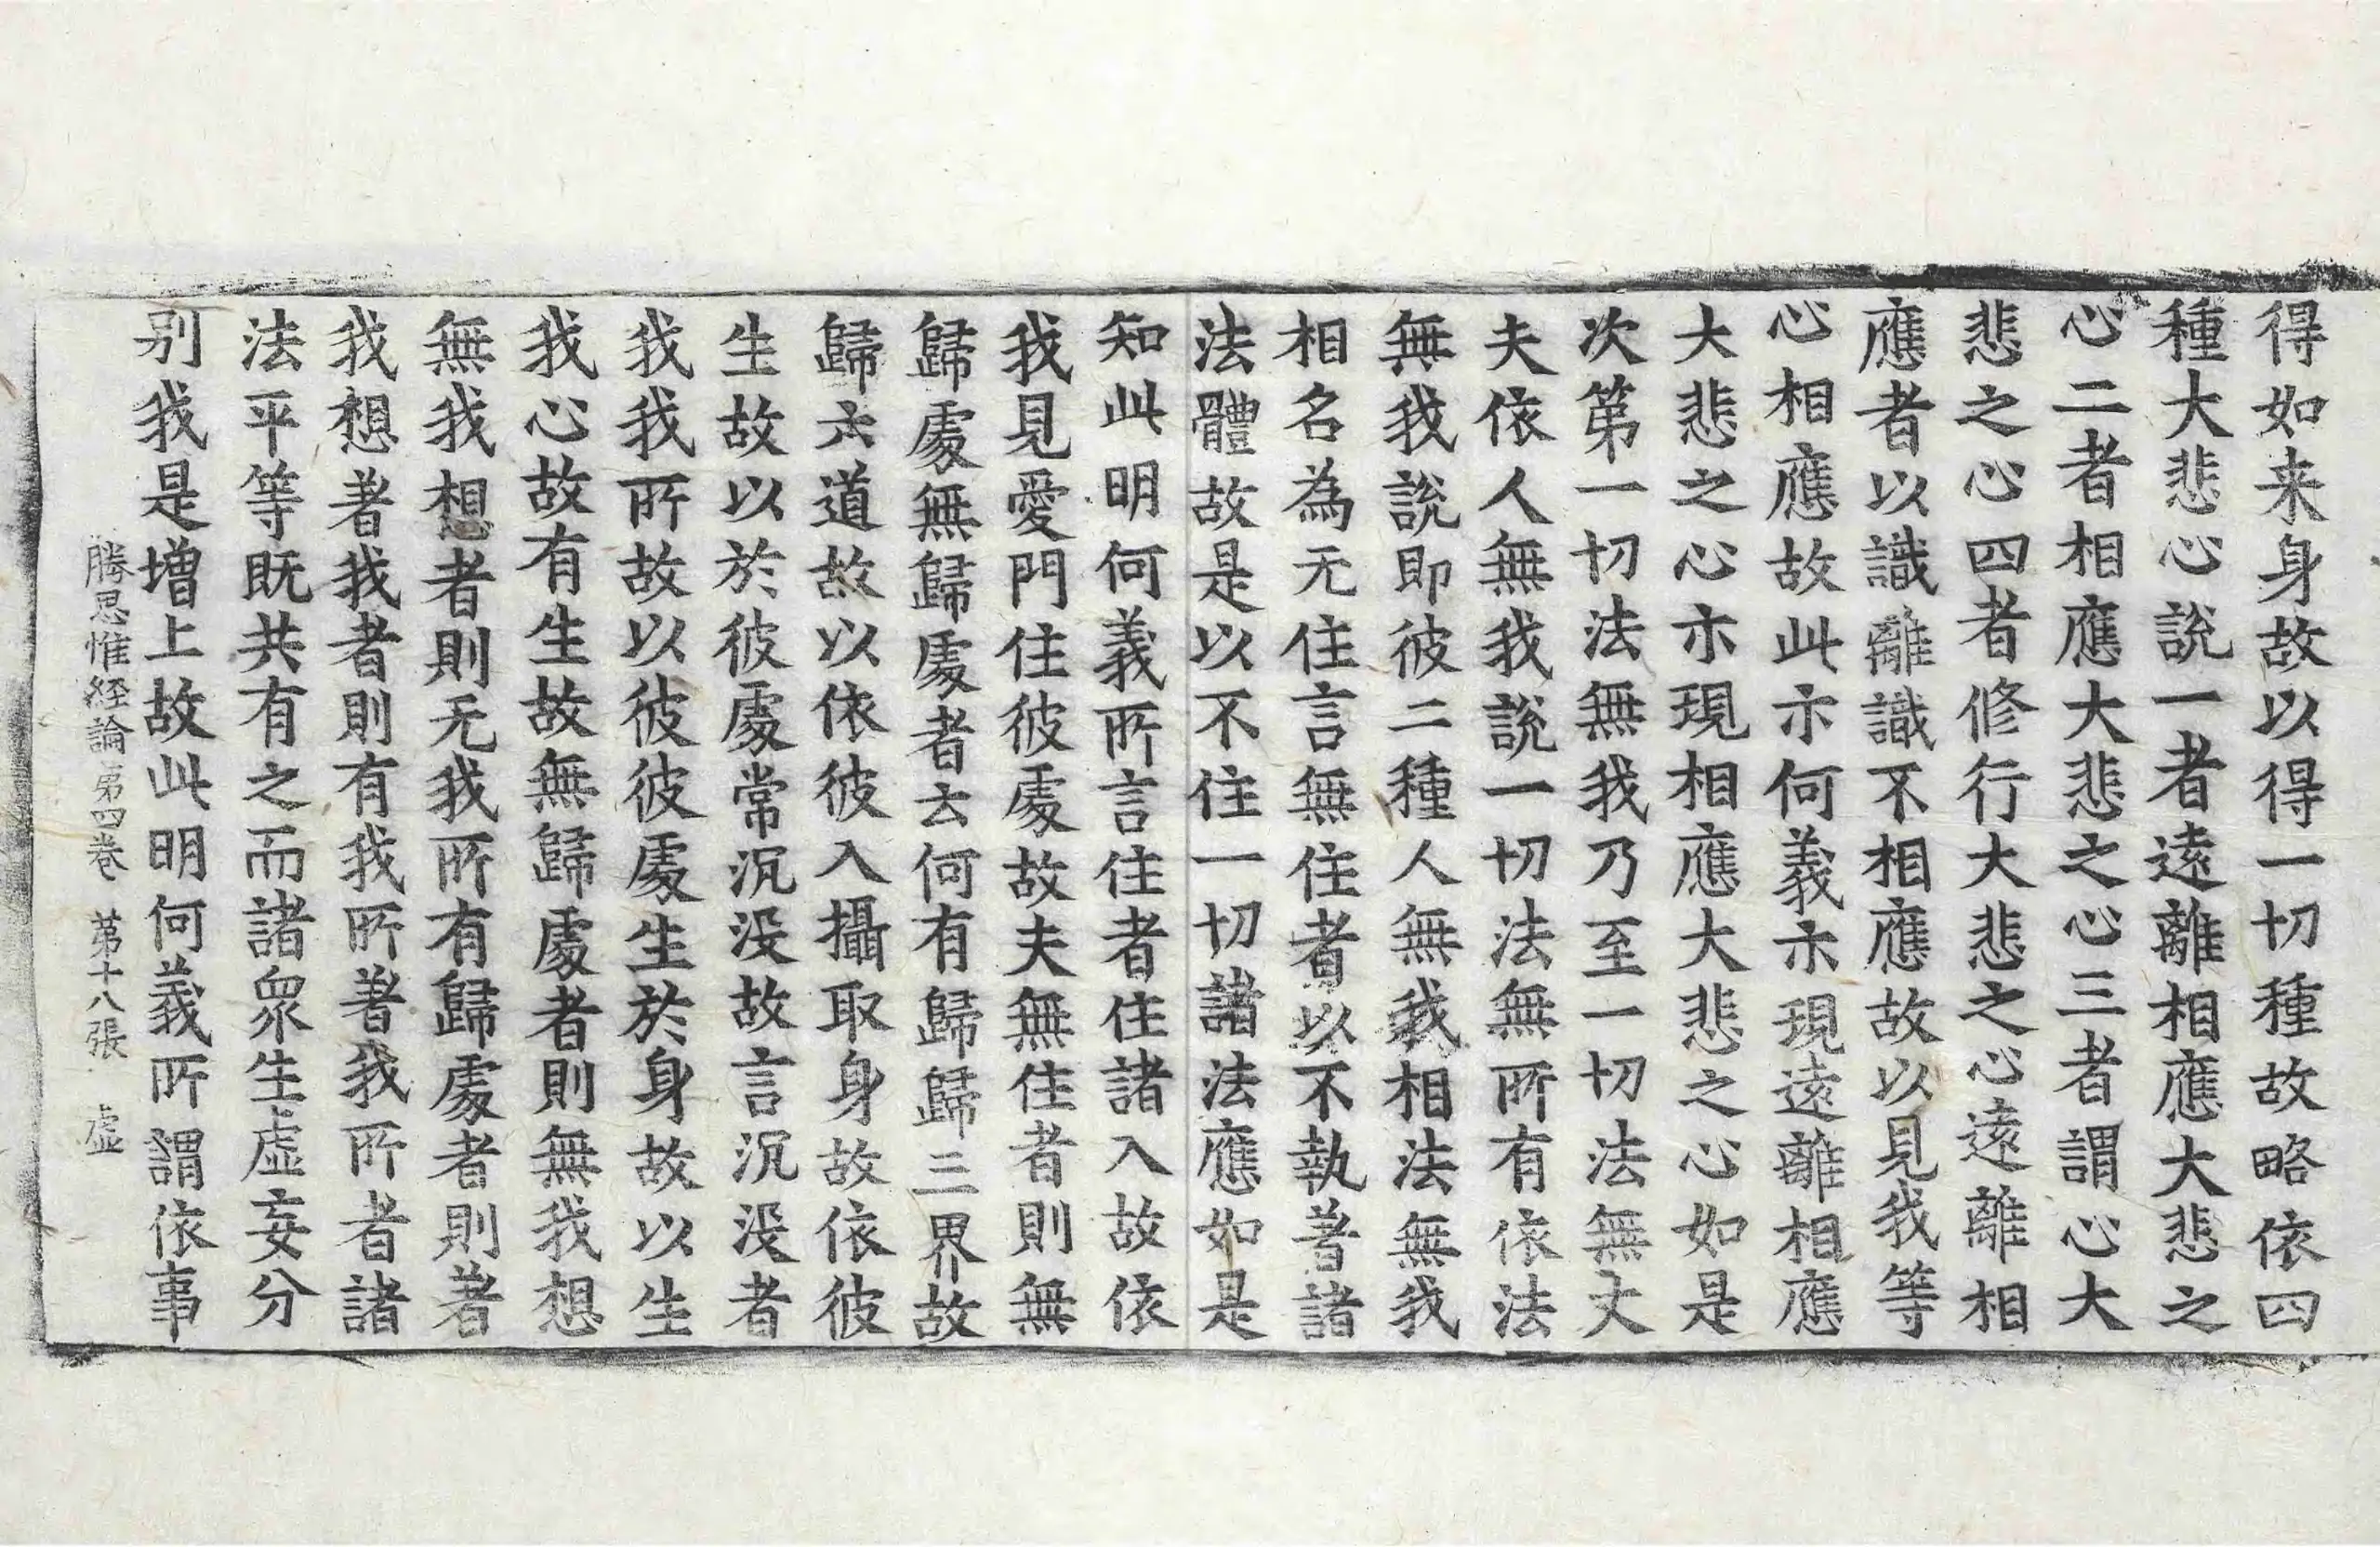 得如来身故以得一切種故略依四
種大悲心說一者遠離相應大悲之
心二者相應大悲之心三者謂心大
悲之心四者修行大悲之心遠離相
應者以識離識不相應故以見我等
心相應故此亦何義亦現遠離相應
大悲之心亦現相應大悲之心如是
次第一切法無我乃至一切法無丈
夫依人無我說一切法無所有依法
無我說即彼二種人無我相法無我
相名為无住言無住者以不執著諸
法體故是以不住一切諸法應如是
知此明何義所言住者住諸入故依
我見愛門住彼處故夫無住者則無
歸處無歸處者云何有歸歸三界故
歸六道故以依彼入攝取身故依彼
生故以於彼處常沉没故言沉没者
我我所故以彼彼處生於身故以生
我心故有生故無歸處者則無我想
無我想者則无我所有歸處者則著
我想著我者則有我所著我所者諸
法平等既共有之而諸衆生虛妄分
别我是增上故此明何義所謂依事
勝思惟経論第四卷 第十八張 虛